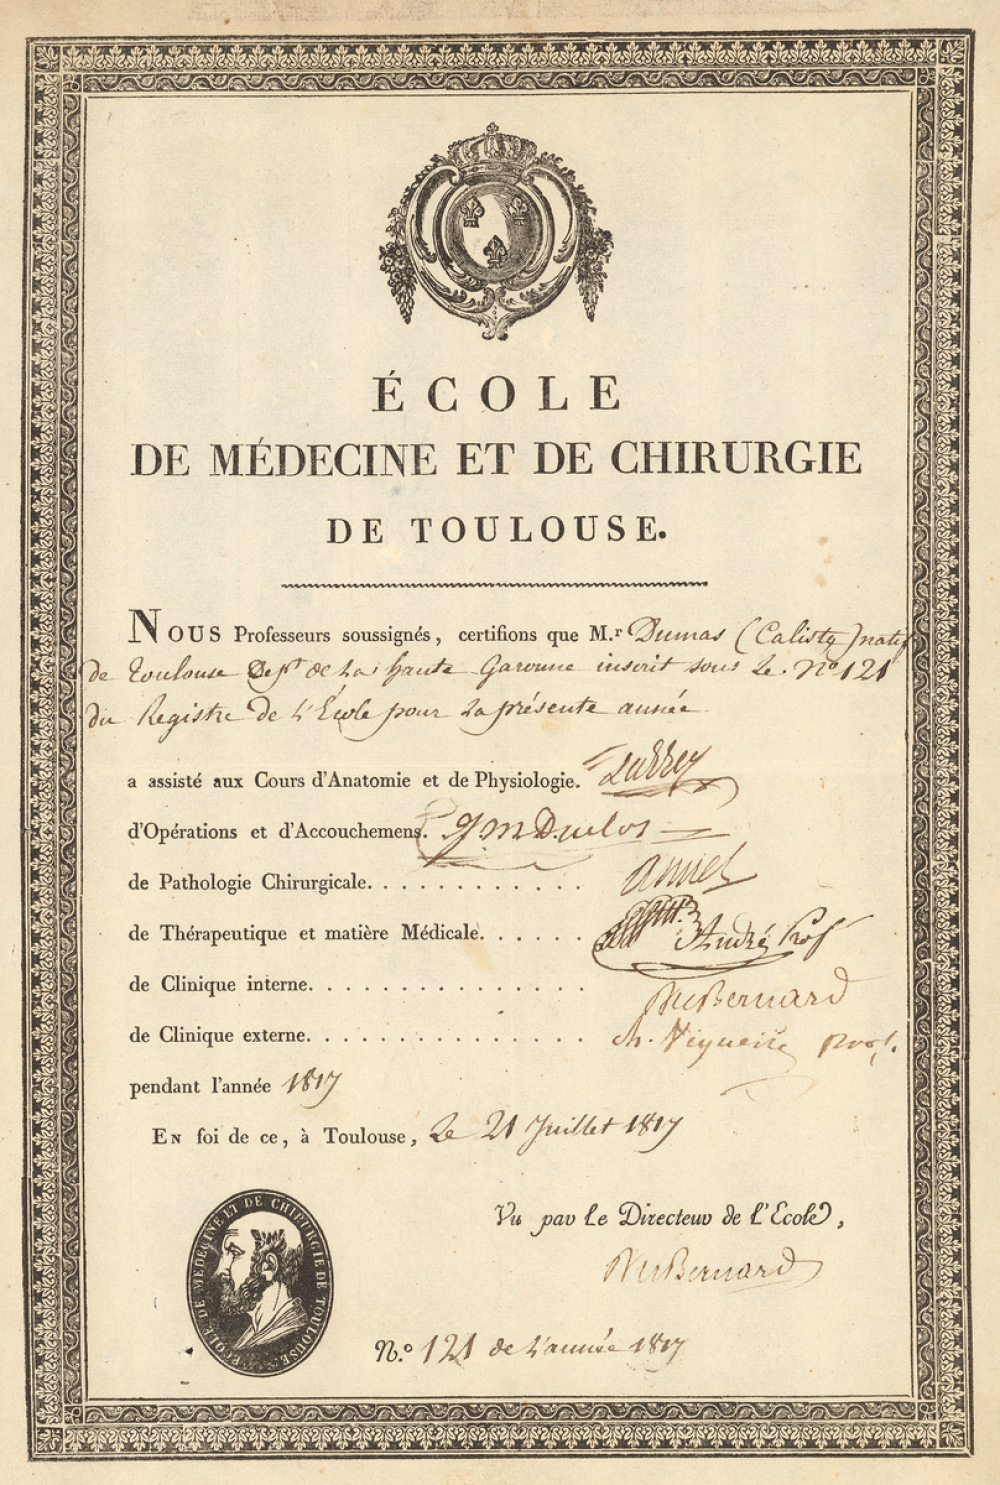 ÉCOLE
DE MÉDECINE ET DE CHIRURGIE
DE TOULOUSE.
NOUS Professeurs soussignés, certifions que M.r Dumas (Caliste) natif
de Toulouse Dept de La haute Garonne inscrit sous Le No 121
du Registre de L'École pour La présente année
a assisté aux Cours d'Anatomie et de Physiologie. Larrey
d'Opérations et d'Accouchemens. J M Duclos
de Pathologie Chirurgicale. . . . . . . . . . . . .
de Thérapeutique et matière Médicale. . . . . . André Prof
de Clinique interne. . . . . . . . . . . . . . . . Bernard
de Clinique externe. . . . . . . . . . . . . . . . ch. Viguerie prof.
pendant l'année 1817
EN foi de ce, à Toulouse, Le 21 Juillet 1817
Vu par le Directeur de l'Ecole,
Bernard
ÉCOLE DE MÉDECINE ET DE CHIRURGIE DE TOULOUSE
N.º 121 de L'année 1817